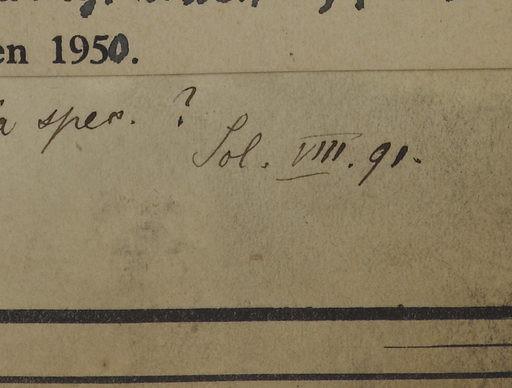 en 1950.
a spec. ?
Sol. VIII. 91.